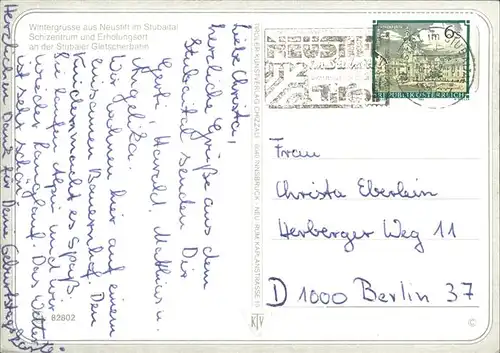 Wintergrüsse aus Neustift im Stubaital
Schizentrum und Erholungsort
an der Stubaier Gletscherbahn
Liebe Christa,
herzliche Grüße aus dem
Stubaital senden Dir
Gerti, Harald, Matthias u.
Angelika.
Wir wohnen hier auf einem
einsamen Bauernhof. Den
Kindern macht es Spaß.
Sie laufen Alpin und wir
wieder Langlauf. Das Wetter
ist sehr schön.
Herzlichen Dank für Deine Geburtstagskarte.
82802
TIROLER KUNSTVERLAG CHIZZALI 6040 INNSBRUCK - NEU RUM KAPLANSTRASSE
KTV
NEUSTIFT
im
S 6
REPUBLIK ÖSTERREICH
Frau
Christa Eberlein
Herberger Weg 11
D 1000 Berlin 37
©